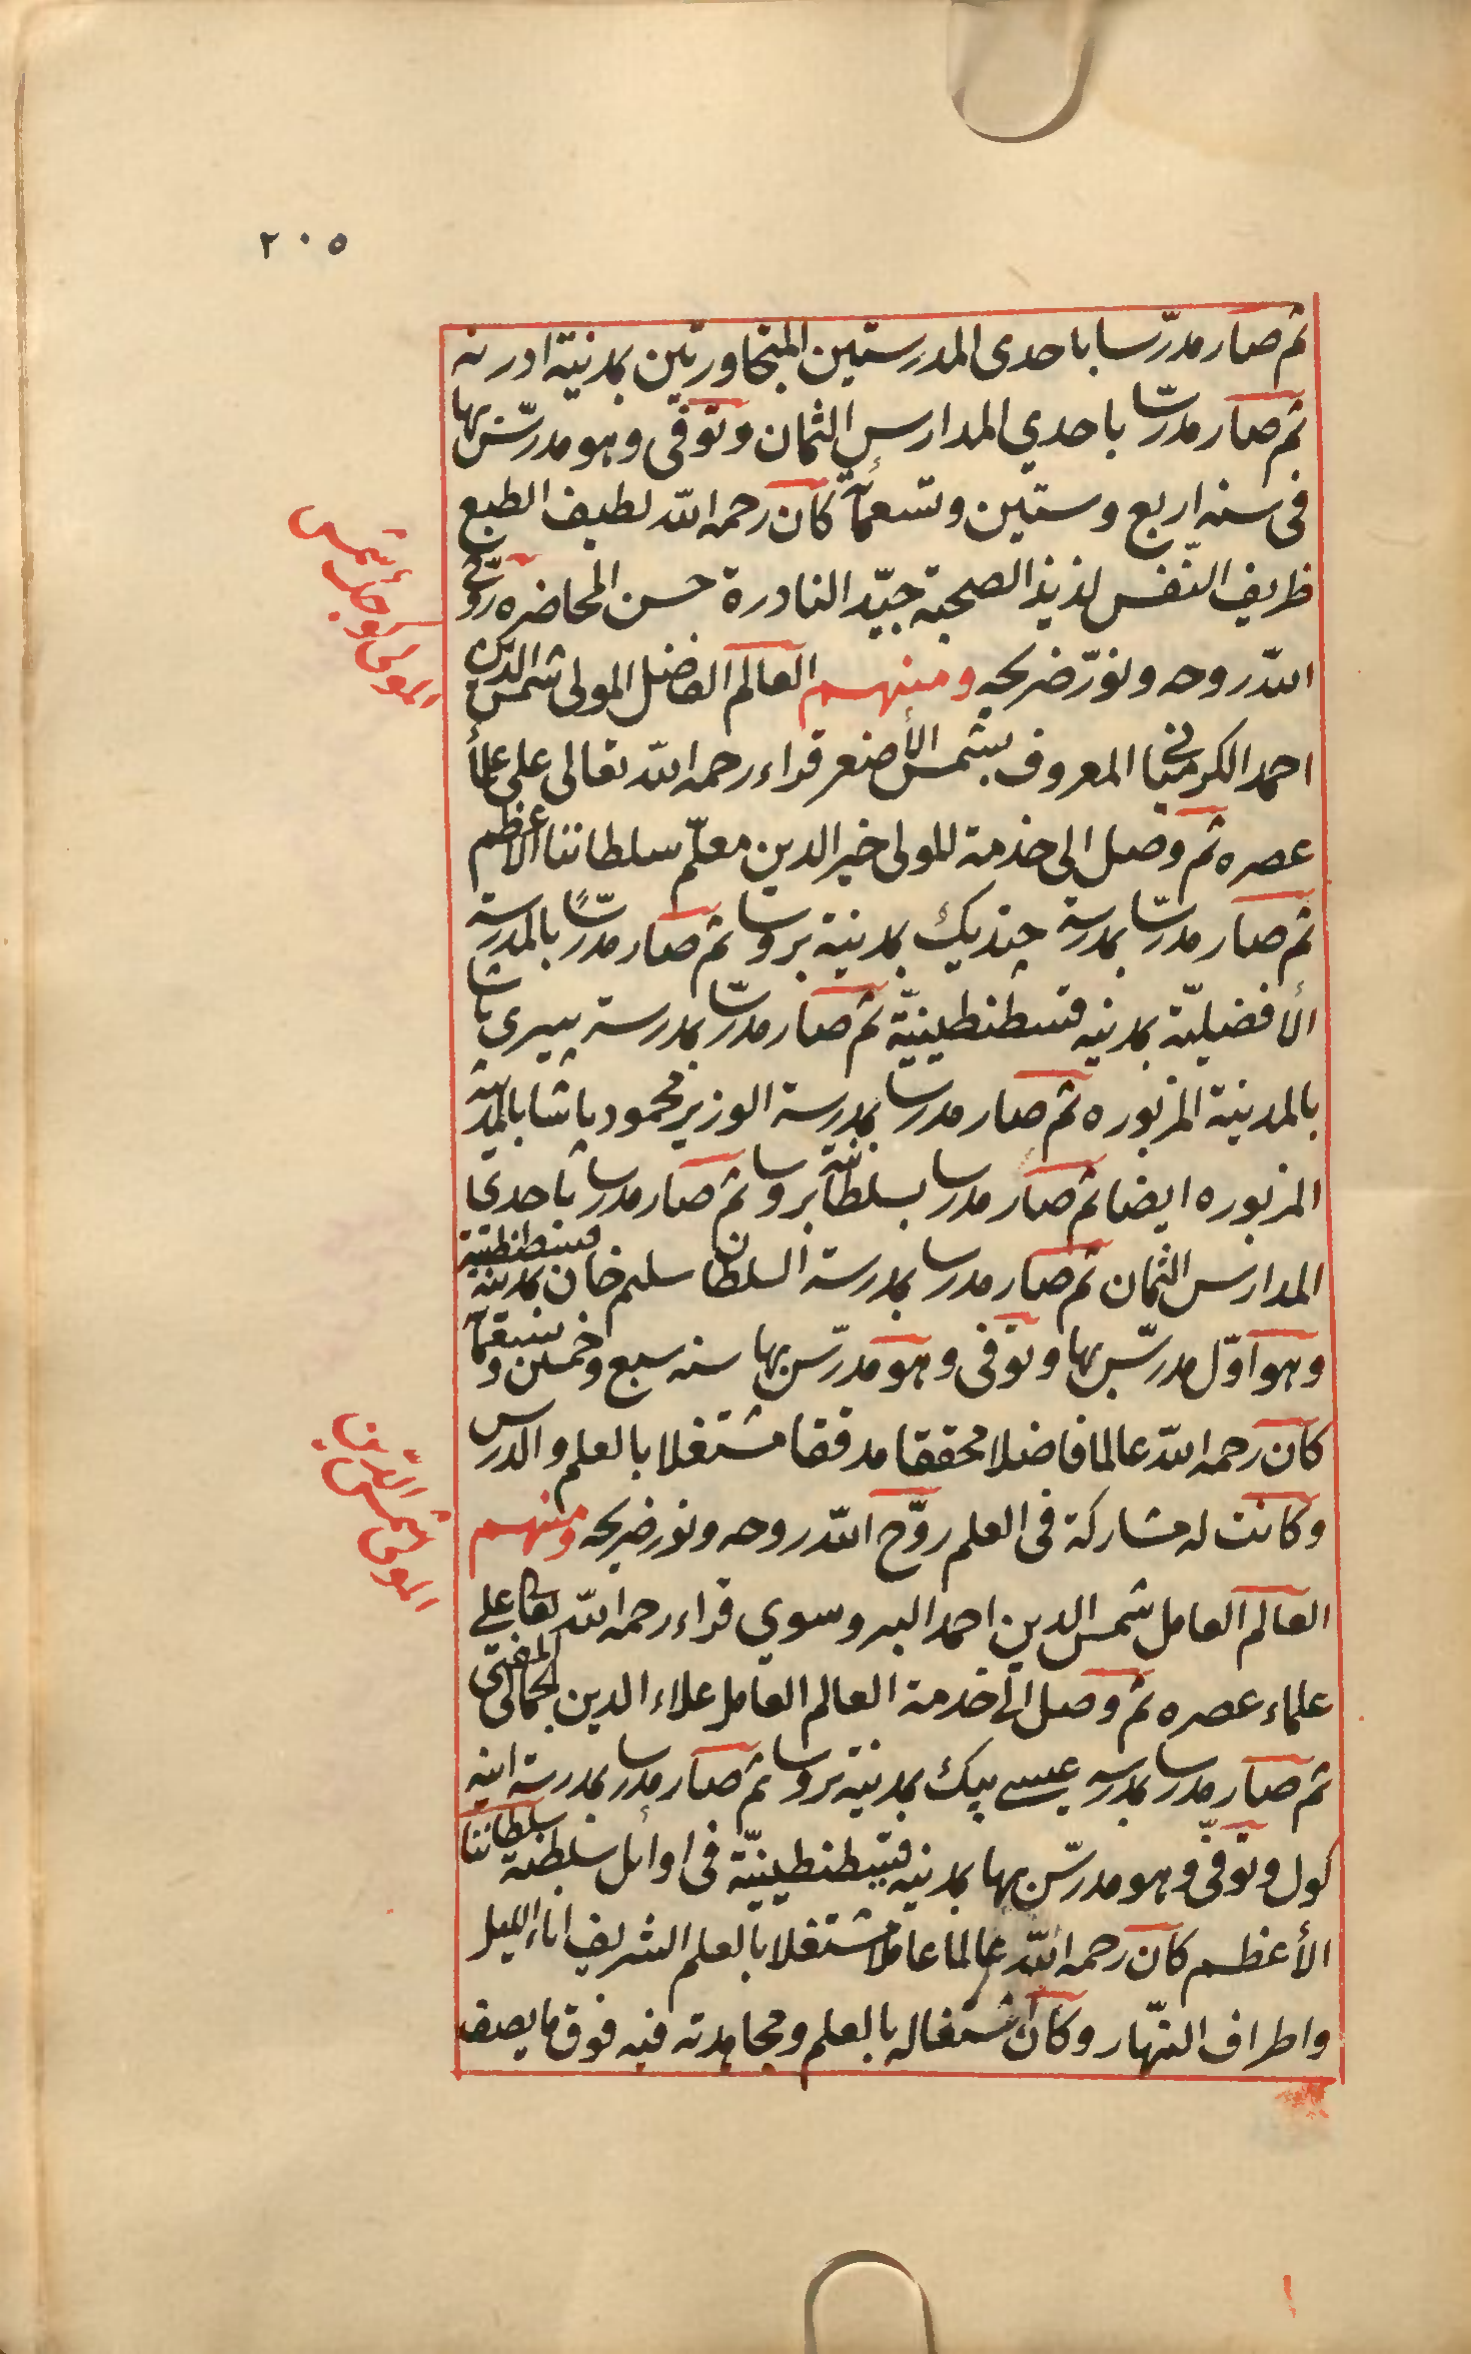 ٢٠٥
ثم صار مدرّسا باحدى المدرستين المتجاورتين بمدينة ادرنه
ثم صار مدرّسا باحدي المدارس الثمان وتوفى وهو مدرّس بها
فى سنه اربع وستين وتسعمائة كان رحمه الله لطيف الطبع
ظريف النّفس لذيذ الصحبة جيّد النادرة حسن المحاضره روّح
المولى كوجك شمس
الله روحه ونوّر ضريحه ومنهم العالم الفاضل المولى شمس الدين
احمد الكرميانى المعروف بشمس الأصغر قراء رحمه الله تعالى على علمأ
عصره ثم وصل الى خدمة المولى خير الدين معلّم سلطاننا الاعظم
ثم صار مدرّسا بمدرسة جنديك بمدينة بروسا ثم صار مدرّسًا بالمدرسة
الأفضليّة بمدينه قسطنطينيّة ثم صار مدرّسا بمدرسة پيرى پاشا
بالمدينة المزبوره ثم صار مدرسا بمدرسة الوزير محمود پاشا بالمدينة
المزبوره ايضا ثم صار مدرسا بسلطانية بروسا ثم صار مدرسا باحدى
المدارس الثمان ثم صار مدرسا بمدرسة السلطان سليم خان بمدينة قسطنطنية
وهو اوّل مدرّس بها وتوفى وهو مدرّس بها سنه سبع وخمسين وتسعمائة
كان رحمه الله عالما فاضلا محققا مدققا مشتغلا بالعلم والدرس
المولى شمس الدين
وكانت له مشاركة فى العلم روّح الله روحه ونور ضريحه ومنهم
العالم العامل شمس الدين احمد البروسوي قراء رحمه الله تعالى على
علماء عصره ثم وصل الى خدمة العالم العامل علاء الدين الجمالى المفتى
ثم صار مدرسا بمدرسه عيسى بيك بمدينة بروسا ثم صار مدرسا بمدرسة اينه
كول وتوفّى وهو مدرّس بها بمدينه قسطنطينيّة فى اوائل سلطنة سلطاننا
الأعظم كان رحمه الله عالما عاملا مشتغلا بالعلم الشريف اناء الليل
واطراف النّهار وكان اشتغاله بالعلم ومجاهدته فيه فوق ما يصفه